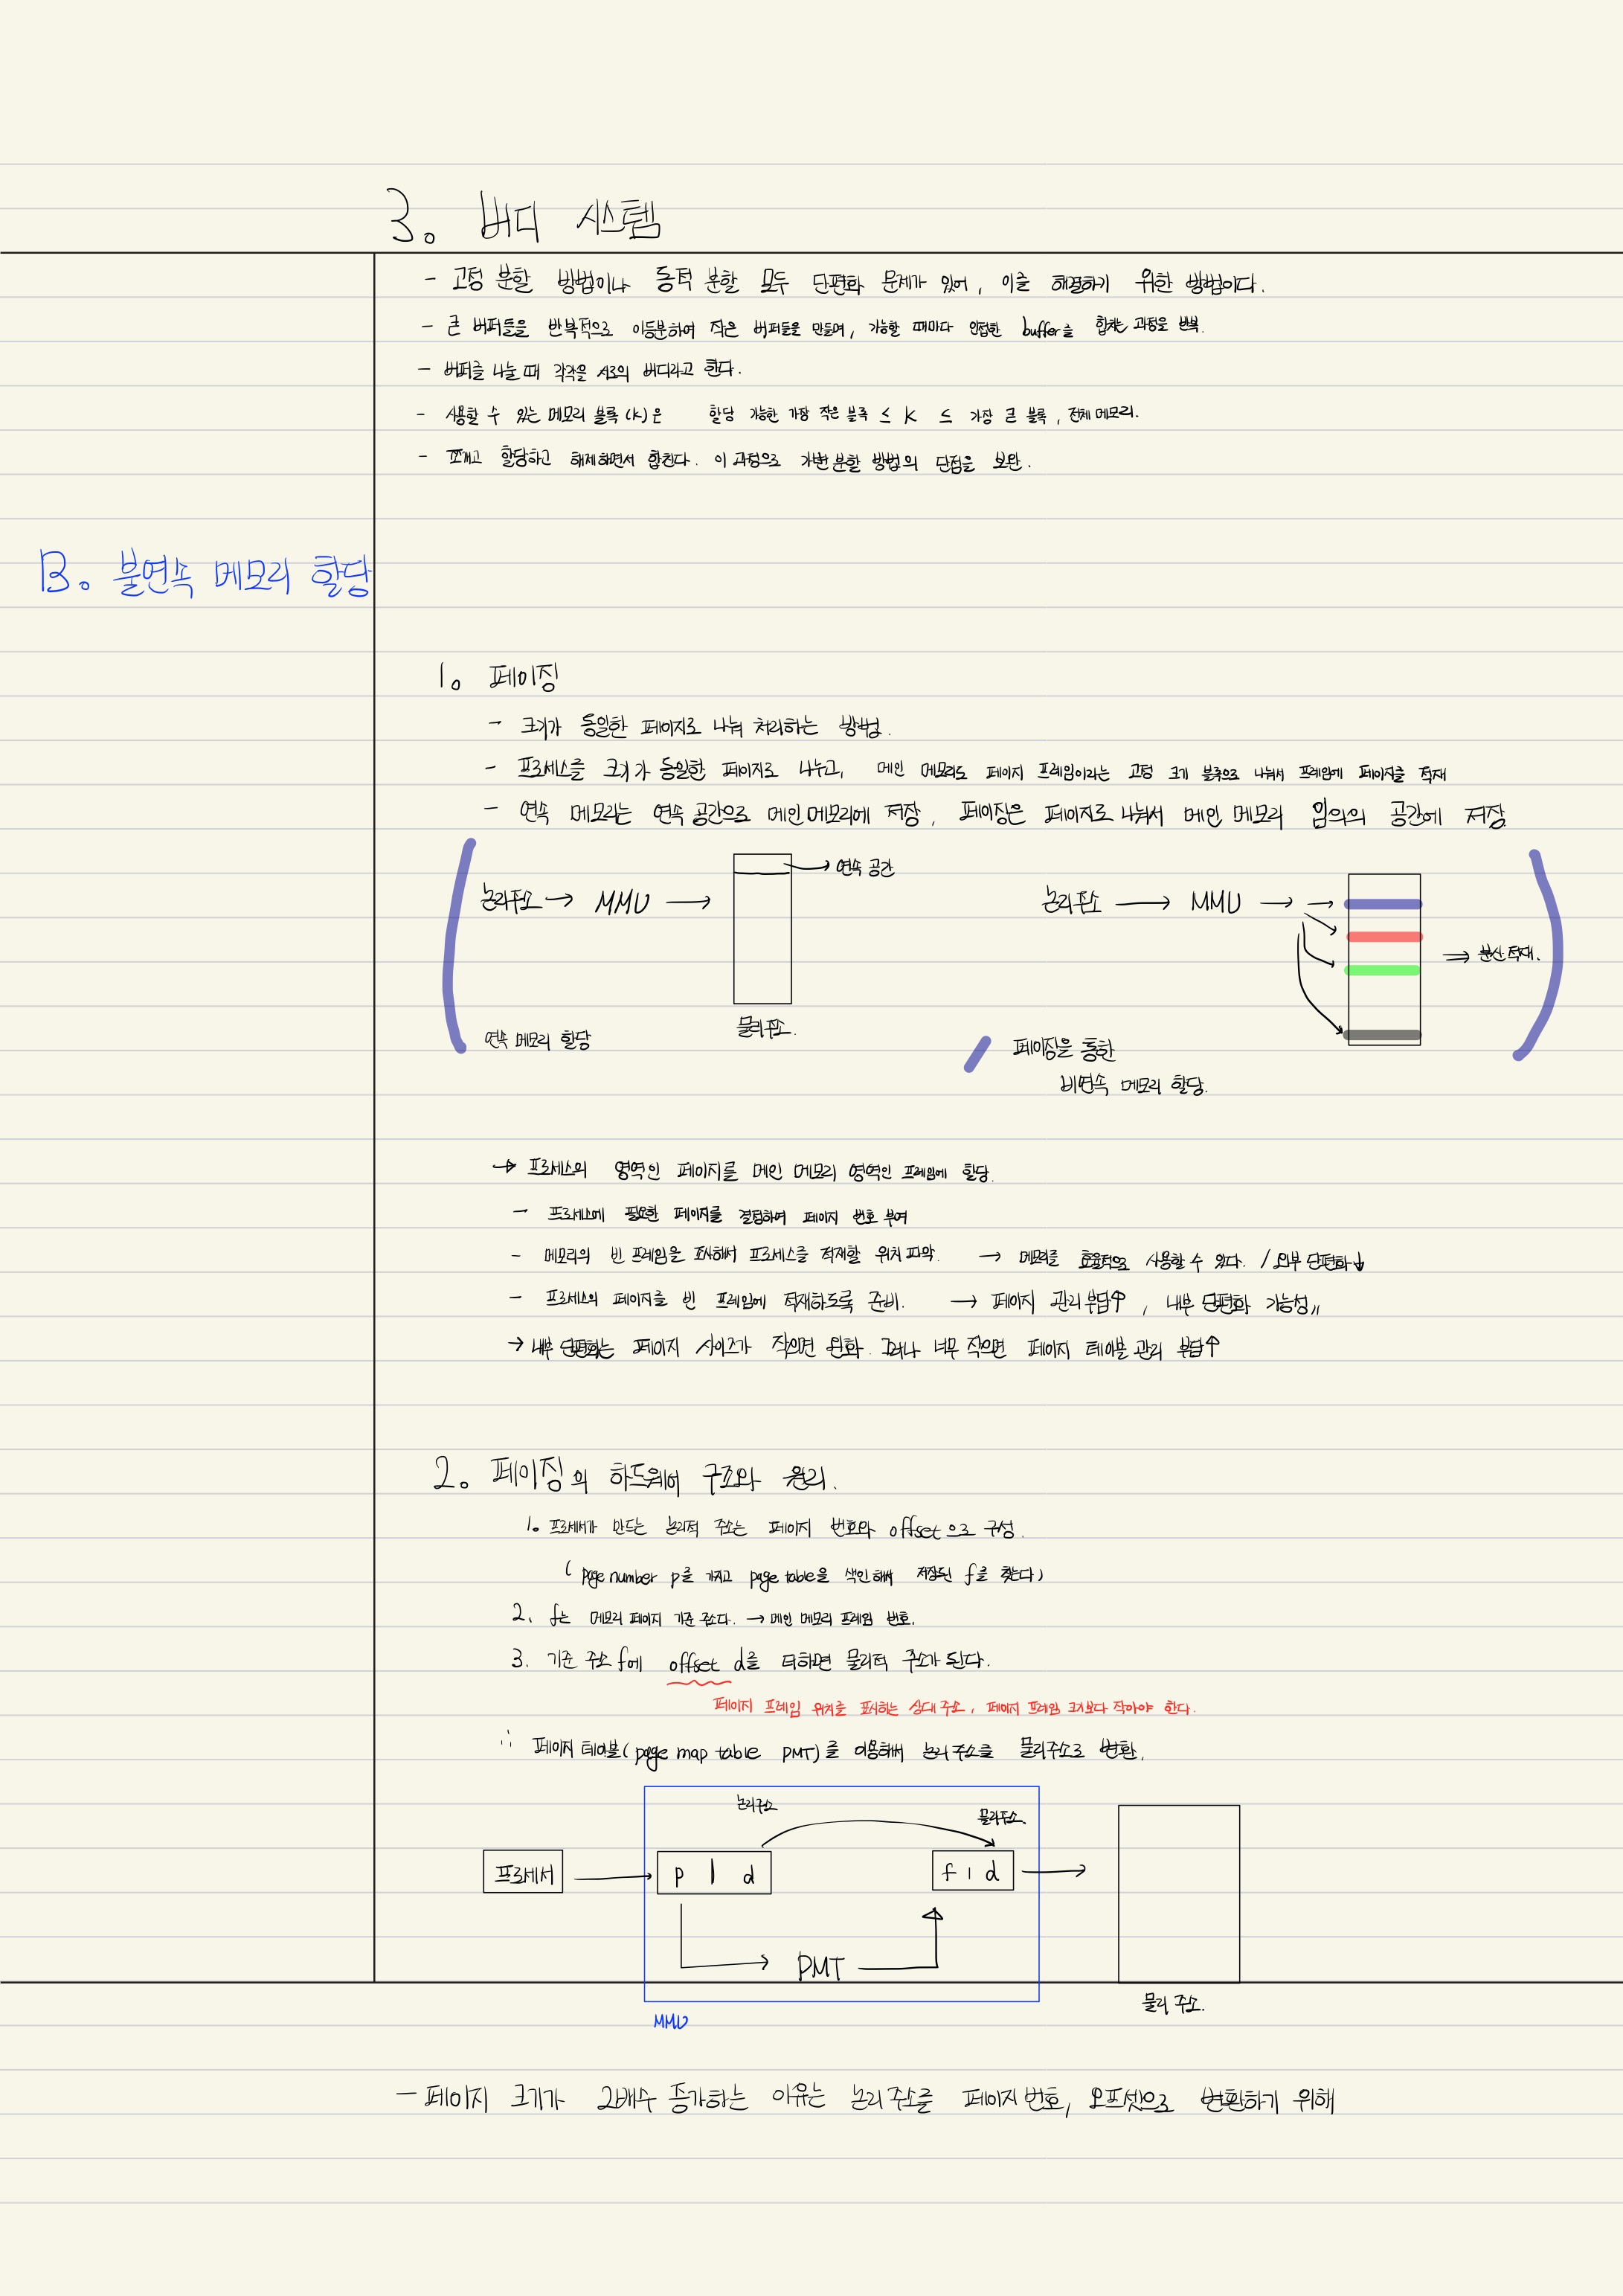 3. 버디 시스템
- 고정 분할 방법이나 동적 분할 모두 단편화 문제가 있어, 이를 해결하기 위한 방법이다.
- 큰 버퍼들을 반복적으로 이등분하여 작은 버퍼들을 만들며, 가능할 때마다 인접한 buffer를 합치는 과정을 반복.
- 버퍼를 나눌 때 각각을 서로의 버디라고 한다.
- 사용할 수 있는 메모리 블록(k)은 할당 가능한 가장 작은 블록 ≤ K ≤ 가장 큰 블록, 전체 메모리.
- 쪼개고 할당하고 해제하면서 합친다. 이 과정으로 가변 분할 방법의 단점을 보완.
B. 불연속 메모리 할당
1. 페이징
- 크기가 동일한 페이지로 나눠 처리하는 방법.
- 프로세스를 크기가 동일한 페이지로 나누고, 메인 메모리도 페이지 프레임이라는 고정 크기 블록으로 나눠서 프레임에 페이지를 적재
- 연속 메모리는 연속 공간으로 메인 메모리에 저장, 페이징은 페이지로 나눠서 메인 메모리 임의의 공간에 저장
→ 연속 공간
논리주소 → MMU →
물리주소.
연속 메모리 할당
논리주소 → MMU → →
→ 분산 적재.
/ 페이징을 통한
비연속 메모리 할당.
→ 프로세스의 영역인 페이지를 메인 메모리 영역인 프레임에 할당.
- 프로세스에 필요한 페이지를 결정하여 페이지 번호 부여
- 메모리의 빈 프레임을 표시해서 프로세스를 적재할 위치 파악. → 메모리를 효율적으로 사용할 수 있다. / 외부 단편화↓
- 프로세스의 페이지를 빈 프레임에 적재하도록 준비. → 페이지 관리 부담↑, 내부 단편화 가능성,,
→ 내부 단편화는 페이지 사이즈가 작으면 완화. 그러나 너무 작으면 페이지 테이블 관리 부담↑
2. 페이징의 하드웨어 구조와 원리.
1. 프로세서가 만드는 논리적 주소는 페이지 번호와 offset으로 구성.
( page number p를 가지고 page table을 색인해서 저장된 f를 찾는다)
2. f는 메모리 페이지 기준 주소다. → 메인 메모리 프레임 번호.
3. 기준 주소 f에 offset d를 더하면 물리적 주소가 된다.
페이지 프레임 위치를 표시하는 상대 주소, 페이지 프레임 크기보다 작아야 한다.
∴ 페이지 테이블(page map table PMT)를 이용해서 논리 주소를 물리주소로 변환.
논리주소
물리주소.
프로세서 → p | d
f | d →
PMT
물리 주소.
MMU
- 페이지 크기가 2배수 증가하는 이유는 논리 주소를 페이지 번호, 오프셋으로 변환하기 위해